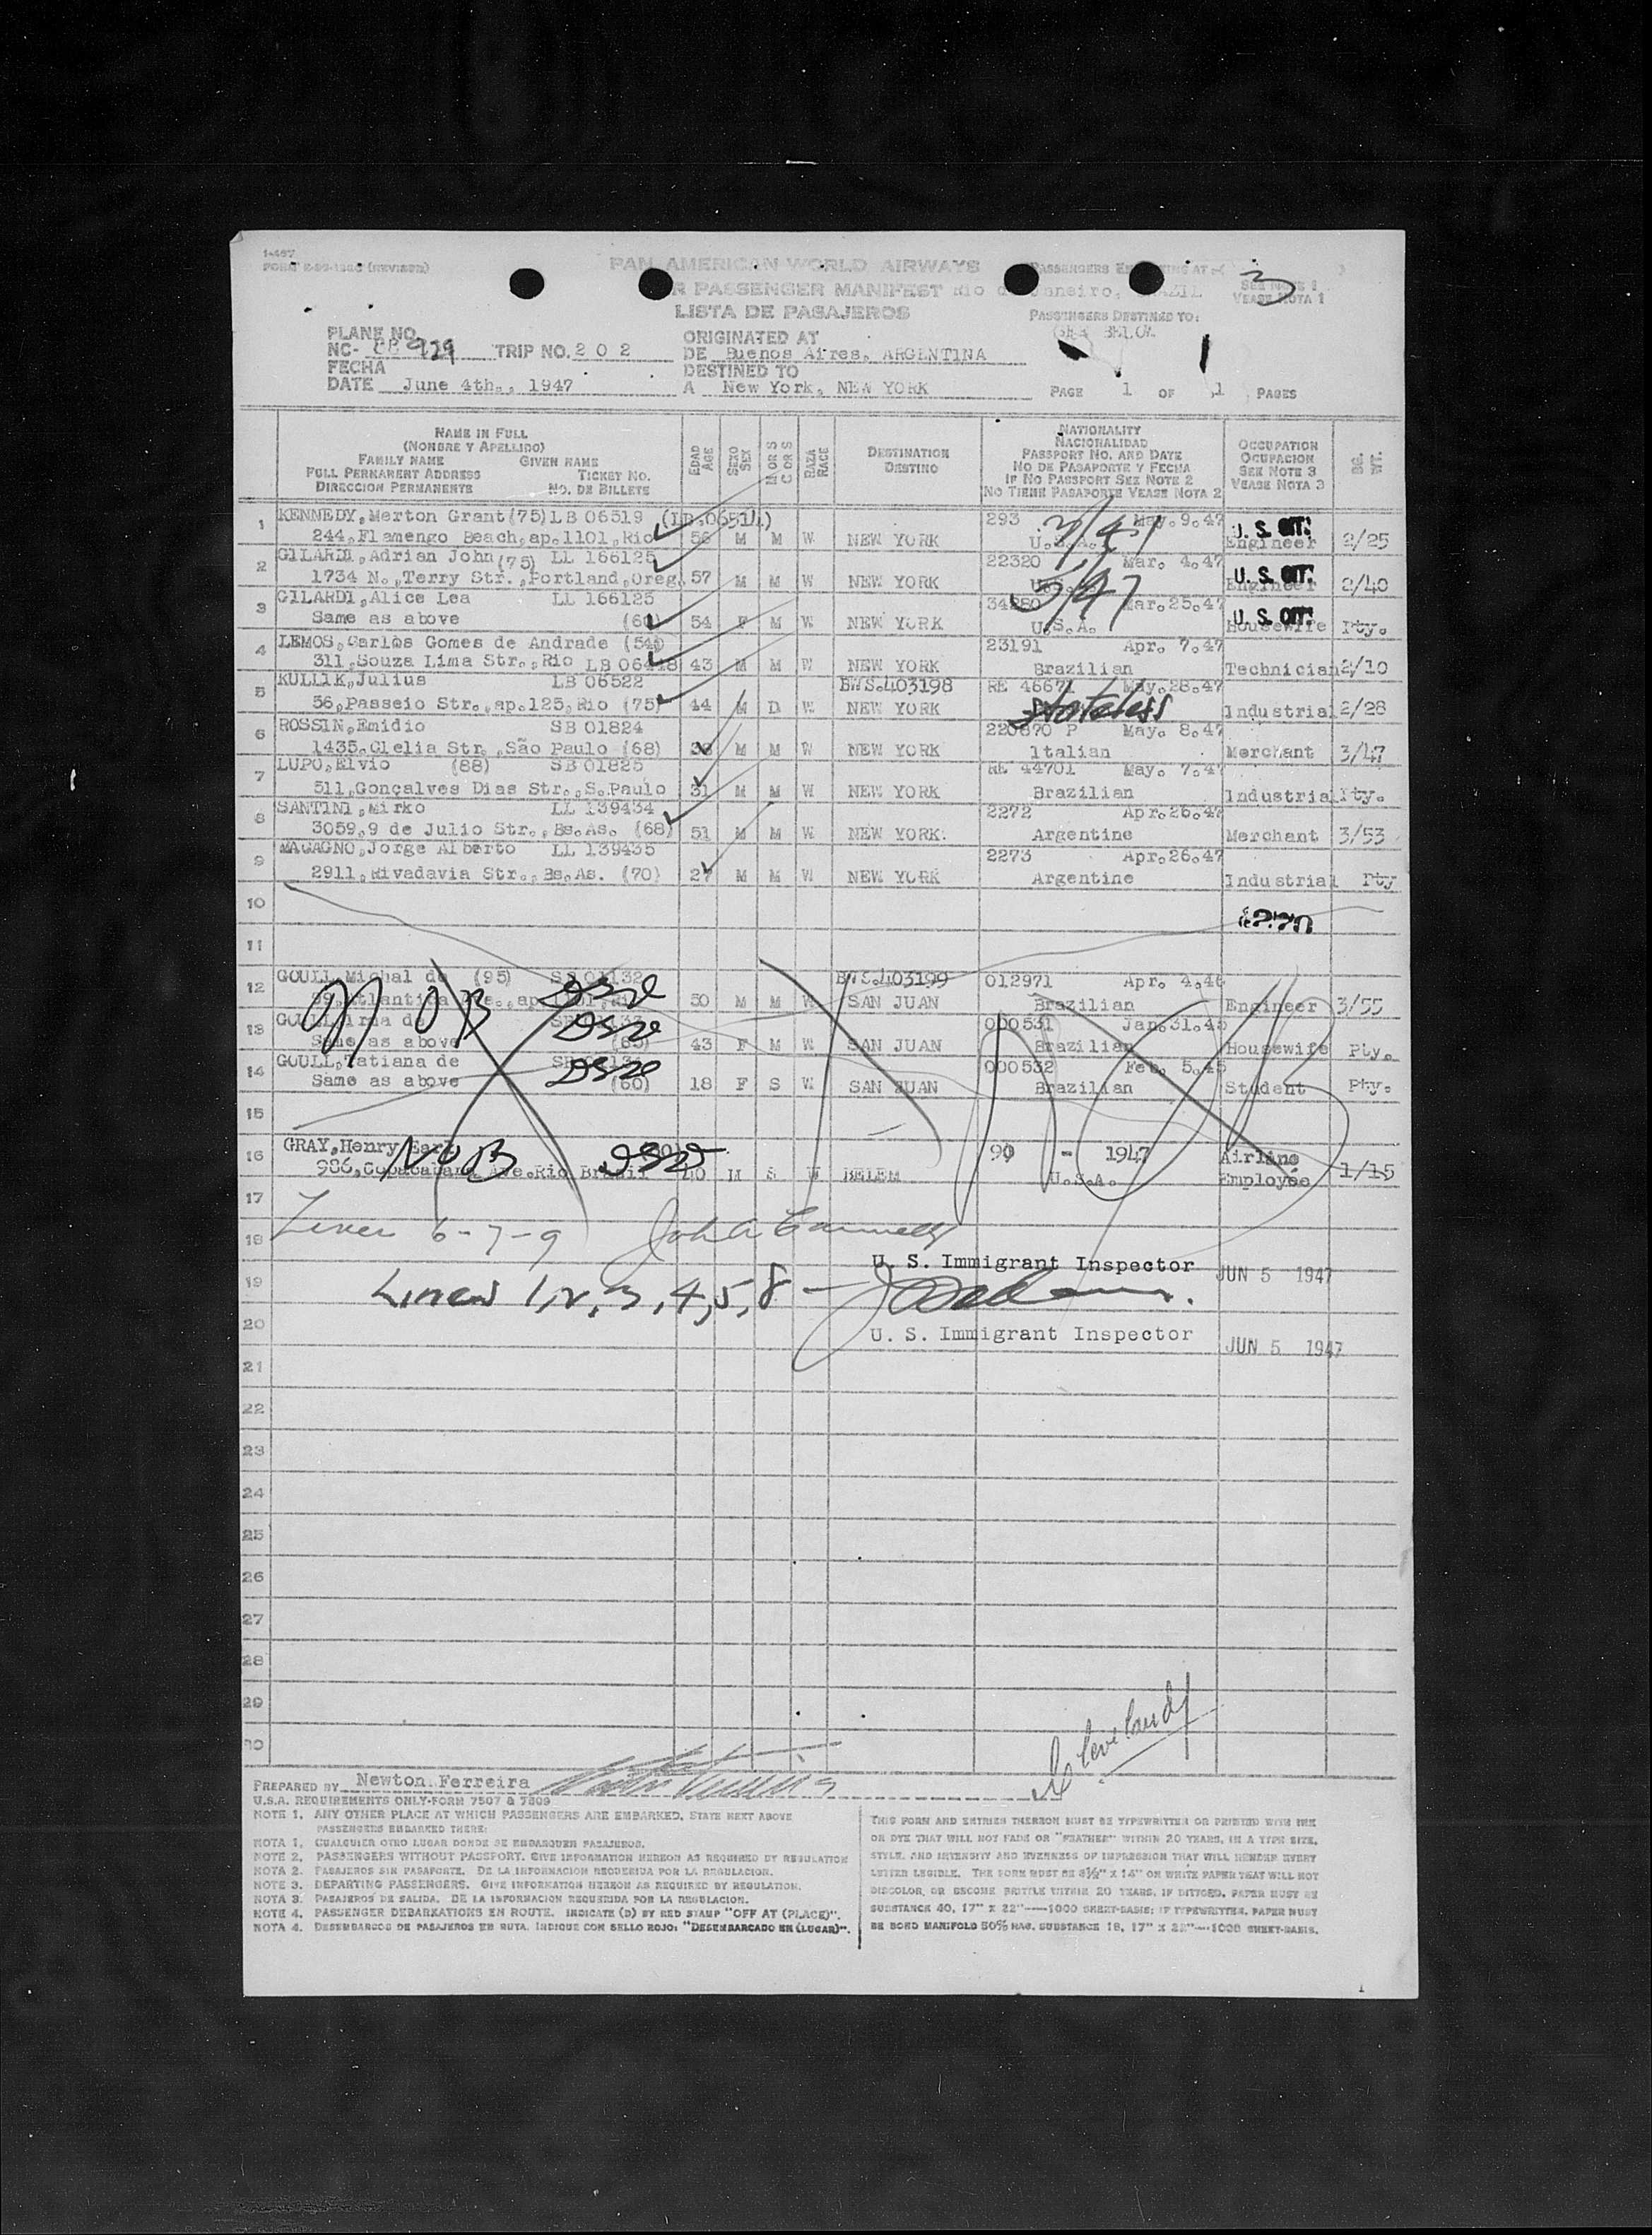 I-467
PAN AMERICAN WORLD AIRWAYS
PASSENGERS AT
3
R PASSENGER MANIFEST Rio de Janeiro, BRAZIL
SEE NOTE 1
VEASE NOTA 1
LISTA DE PASAJEROS
PASSENGERS DESTINED TO:
SEE BELOW
PLANE NO.
NC- 929 TRIP NO. 2 0 2
ORIGINATED AT
DE Buenos Aires, ARGENTINA
FECHA
DATE June 4th., 1947
DESTINED TO
A New York, NEW YORK
PAGE 1 OF 1 PAGES
NAME IN FULL
(NOMBRE Y APELLIDO)
FAMILY NAME GIVEN NAME
FULL PERMANENT ADDRESS TICKET NO.
DIRECCION PERMANENTE NO. DE BILLETE
EDAD
AGE
SEXO
SEX
M OR S
C OR S
RAZA
RACE
DESTINATION
DESTINO
NATIONALITY
NACIONALIDAD
PASSPORT NO. AND DATE
NO DE PASAPORTE Y FECHA
IF NO PASSPORT SEE NOTE 2
NO TIENE PASAPORTE VEASE NOTA 2
OCCUPATION
OCUPACION
SEE NOTE 3
VEASE NOTA 3
BG.
WT.
1 KENNEDY, Merton Grant (75) LB 06519 (LB.06514) 293 May. 9. 47 U. S. CIT.
244, Flamengo Beach, ap. 1101, Rio 56 M M W NEW YORK U.S.A. Engineer 2/25
2 GILARDI, Adrian John (75) LL 166125 22320 Mar. 4. 47 U. S. CIT.
1734 N., Terry Str., Portland, Oreg. 57 M M W NEW YORK Engineer 2/40
3 GILARDI, Alice Lea LL 166125 34280 Mar. 25. 47 U. S. CIT.
Same as above 54 F M W NEW YORK U.S.A. Housewife Pty.
4 LEMOS, Carlos Gomes de Andrade (54) 23191 Apr. 7. 47
311, Souza Lima Str., Rio LB 06448 43 M M W NEW YORK Brazilian Technician 2/10
5 KULLIK, Julius LB 06522 BWS. 403198 RE 46671 May. 28. 47
56, Passeio Str., ap. 125, Rio (75) 44 M D W NEW YORK stateless Industrial 2/28
6 ROSSIN, Emidio SB 01824 220870 P May. 8. 47
1435, Clelia Str., São Paulo (68) 38 M M W NEW YORK Italian Merchant 3/47
7 LUPO, Elvio (88) SB 01825 RE 44701 May. 7. 47
511, Gonçalves Dias Str., S. Paulo 31 M M W NEW YORK Brazilian Industrial Pty.
8 SANTINI, Mirko LL 139434 2272 Apr. 26. 47
3059, 9 de Julio Str., Bs. As. (68) 51 M M W NEW YORK. Argentine Merchant 3/53
9 MAGAGNO, Jorge Alberto LL 139435 2273 Apr. 26. 47
2911, Rivadavia Str., Bs. As. (70) 27 M M W NEW YORK Argentine Industrial Pty
10
11
12 GOULL, Michal de (95) SB 01132 BWS. 403199 012971 Apr. 4. 46
Atlantica Ave., ap 50 M M W SAN JUAN Brazilian Engineer 3/55
13 GOULL, Irma de 000531 Jan. 31. 45
Same as above 43 F M W SAN JUAN Brazilian Housewife Pty.
14 GOULL, Tatiana de 000532 Feb. 5. 45
Same as above (60) 18 F S W SAN JUAN Brazilian Student Pty.
N O B
15
16 GRAY, Henry Earl 90 - 1947 Airline
986, Copacabana Ave. Rio Brazil 40 M S W BELEM U.S.A. Employee 1/15
NOB
17
18 Lines 6-7-9
U. S. Immigrant Inspector JUN 5 1947
19 Lines 1, 2, 3, 4, 5, 8 -
20 U. S. Immigrant Inspector JUN 5 1947
21
22
23
24
25
26
27
28
29
30
Cleveland
PREPARED BY Newton Ferreira
U.S.A. REQUIREMENTS ONLY-FORM 7507 & 7509
NOTE 1. ANY OTHER PLACE AT WHICH PASSENGERS ARE EMBARKED, STATE NEXT ABOVE
PASSENGERS EMBARKED THERE:
NOTA 1. CUALQUIER OTRO LUGAR DONDE SE EMBARQUEN PASAJEROS.
NOTE 2. PASSENGERS WITHOUT PASSPORT. GIVE INFORMATION HEREON AS REQUIRED BY REGULATION
NOTA 2. PASAJEROS SIN PASAPORTE. DE LA INFORMACION REQUERIDA POR LA REGULACION.
NOTE 3. DEPARTING PASSENGERS. GIVE INFORMATION HEREON AS REQUIRED BY REGULATION.
NOTA 3. PASAJEROS DE SALIDA. DE LA INFORMACION REQUERIDA POR LA REGULACION.
NOTE 4. PASSENGER DEBARKATIONS EN ROUTE. INDICATE (D) BY RED STAMP "OFF AT (PLACE)".
NOTA 4. DESEMBARCOS DE PASAJEROS EN RUTA. INDIQUE CON SELLO ROJO: "DESEMBARCADO EN (LUGAR)".
THIS FORM AND ENTRIES THEREON MUST BE TYPEWRITTEN OR PRINTED WITH INK
OR DYE THAT WILL NOT FADE OR "FEATHER" WITHIN 20 YEARS, IN A TYPE SIZE,
STYLE, AND INTENSITY AND EVENNESS OF IMPRESSION THAT WILL RENDER EVERY
LETTER LEGIBLE. THE FORM MUST BE 8½" X 14" ON WHITE PAPER THAT WILL NOT
DISCOLOR, OR BECOME BRITTLE WITHIN 20 YEARS. IF DITTOED, PAPER MUST BE
SUBSTANCE 40, 17" X 22"—1000 SHEET-BASIS; IF TYPEWRITTEN, PAPER MUST
BE BOND MANIFOLD 50% RAG, SUBSTANCE 18, 17" X 22"—1000 SHEET-BASIS.